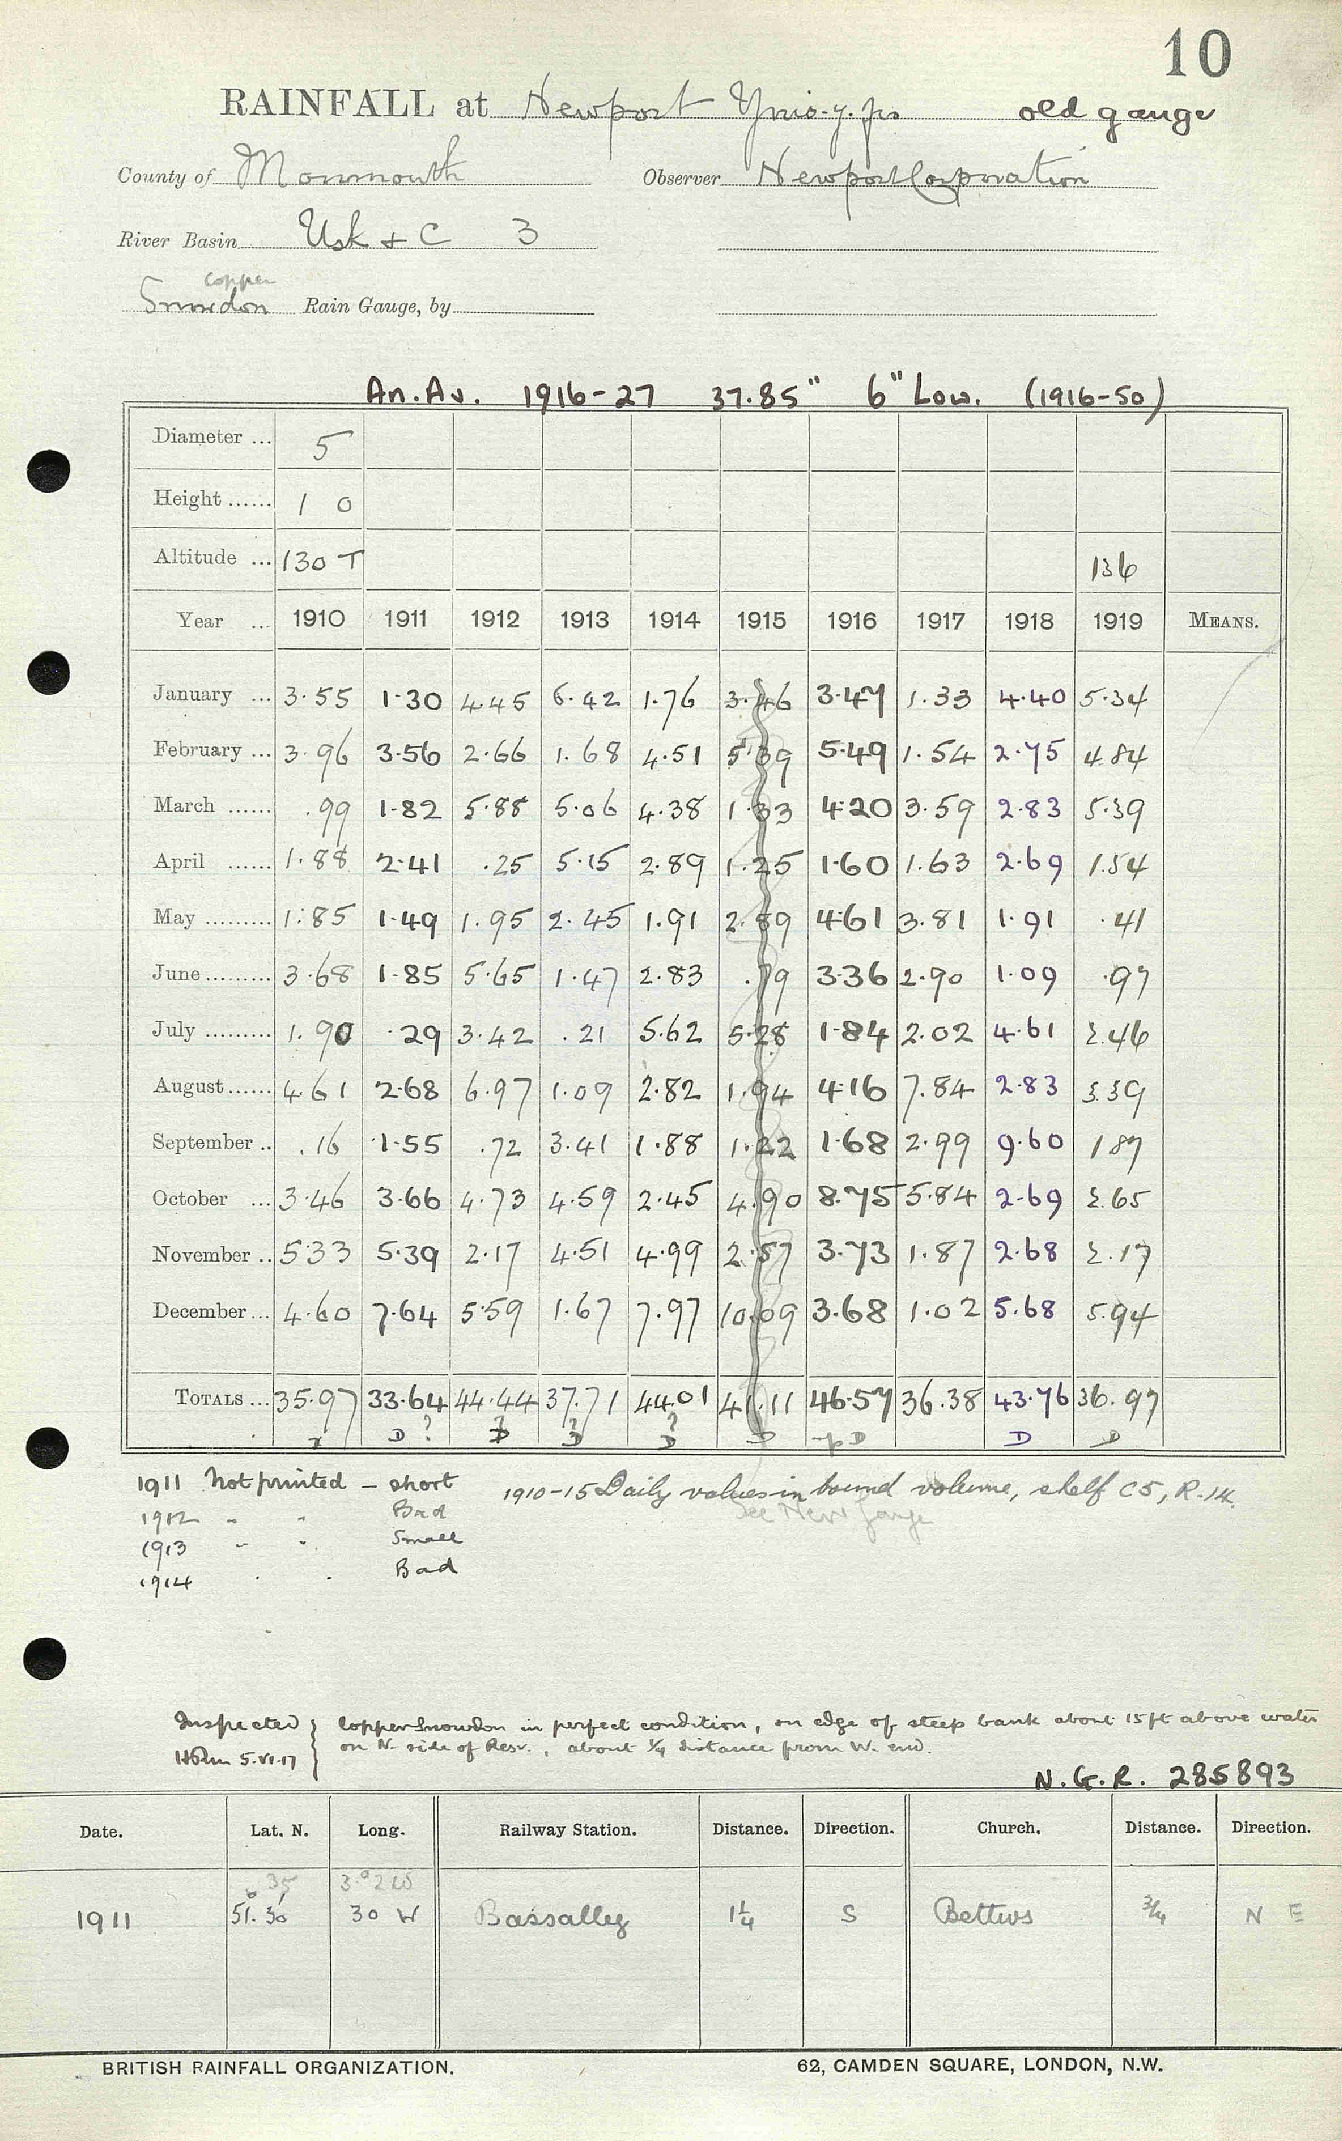 10
RAINFALL at Newport Ynis-y-fro old gauge
County of Monmouth Observer Newport Corporation
River Basin Usk + C 3
copper
Snowdon Rain Gauge, by
An. Av. 1916-27 37.85" 6" Low. (1916-50)
Diameter ... 5
Height ...... 1 0
Altitude ... 130 T 136
Year ... 1910 1911 1912 1913 1914 1915 1916 1917 1918 1919 MEANS.
January ... 3.55 1.30 4.45 6.42 1.76 3.46 3.47 1.33 4.40 5.34
February ... 3.96 3.56 2.66 1.68 4.51 5.39 5.49 1.54 2.75 4.84
March ...... .99 1.82 5.88 5.06 4.38 1.33 4.20 3.59 2.83 5.39
April ...... 1.88 2.41 .25 5.15 2.89 1.25 1.60 1.63 2.69 1.54
May ......... 1.85 1.49 1.95 2.45 1.91 2.89 4.61 3.81 1.91 .41
June ......... 3.68 1.85 5.65 1.47 2.83 .79 3.36 2.90 1.09 .97
July ......... 1.90 .29 3.42 .21 5.62 5.28 1.84 2.02 4.61 2.46
August ...... 4.61 2.68 6.97 1.09 2.82 1.94 4.16 7.84 2.83 3.39
September .. .16 1.55 .72 3.41 1.88 1.22 1.68 2.99 9.60 1.87
October ... 3.46 3.66 4.73 4.59 2.45 4.90 8.75 5.84 2.69 2.65
November .. 5.33 5.39 2.17 4.51 4.99 2.57 3.73 1.87 2.68 2.17
December ... 4.60 7.64 5.59 1.67 7.97 10.09 3.68 1.02 5.68 5.94
TOTALS ... 35.97 33.64 44.44 37.71 44.01 41.11 46.57 36.38 43.76 36.97
D ? ? D ? D ? D D D D D
1911 Not printed - short 1910-15 Daily values in bound volume, shelf C5, R.14.
1912 " " Bad See New Gauge
1913 " " Small
1914 . . Bad
Inspected } Copper Snowdon in perfect condition, on edge of steep bank about 15 ft above water
5.VI.17 on N. side of Resr., about 1/4 distance from W. end.
N.G.R. 285893
Date. Lat. N. Long. Railway Station. Distance. Direction. Church. Distance. Direction.
35 3.°2 W
1911 51.36 30 W Bassalleg 1 1/4 S Bettws 3/4 N E
BRITISH RAINFALL ORGANIZATION. 62, CAMDEN SQUARE, LONDON, N.W.